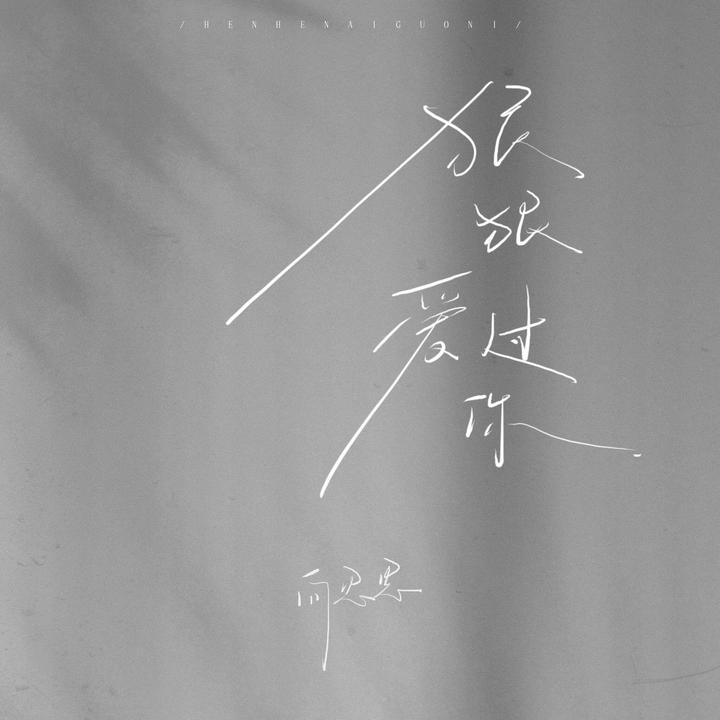 /HENHENAIGUONI/
狠
狠
爱过
你
向思思